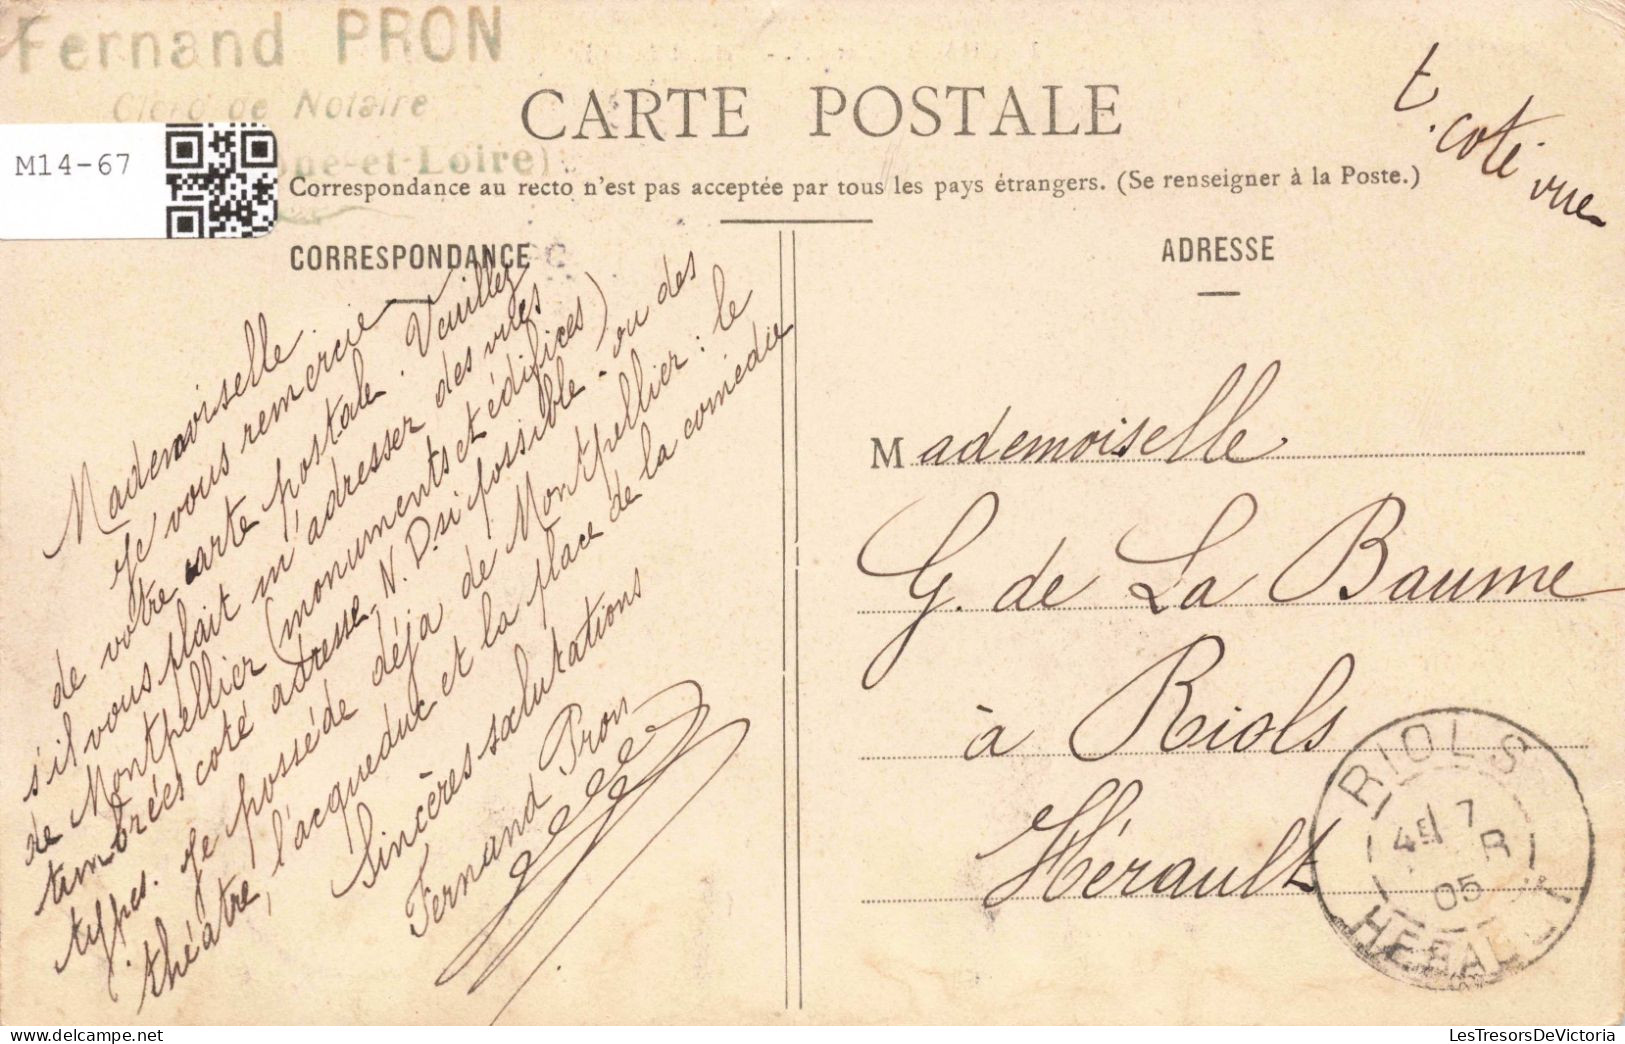 Fernand PRON
Clerc de Notaire
ne-et-Loire)
M14-67
CARTE POSTALE
t. coté vue
Correspondance au recto n'est pas acceptée par tous les pays étrangers. (Se renseigner à la Poste.)
CORRESPONDANCE
Mademoiselle
Je vous remercie
de votre carte postale. Veuillez
s'il vous plait m'adresser des vues
de Montpellier (monuments et édifices)
timbrées coté adresse. N. D. si possible - ou des
types. Je possède déja de Montpellier : le
théatre, l'acqueduc et la place de la comédie
Sincères salutations
Fernand Pron
ADRESSE
Mademoiselle
G. de La Baume
à Riols
Hérault
RIOLS
4E 7
R
05
HERAULT
LesTresorsDeVictoria